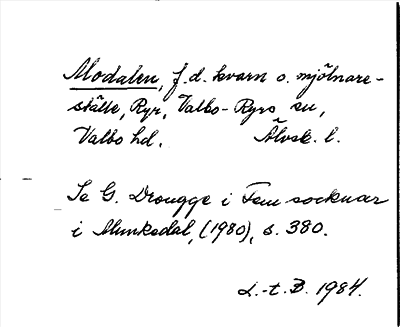 Modalen, f.d. kvarn o. mjölnare-
ställe, Ryr, Valbo-Ryrs sn,
Valbo hd. Älvsb. l.
Se G. Drougge i Fem socknar
i Munkedal, (1980), s. 380.
L.-t. B. 1984.